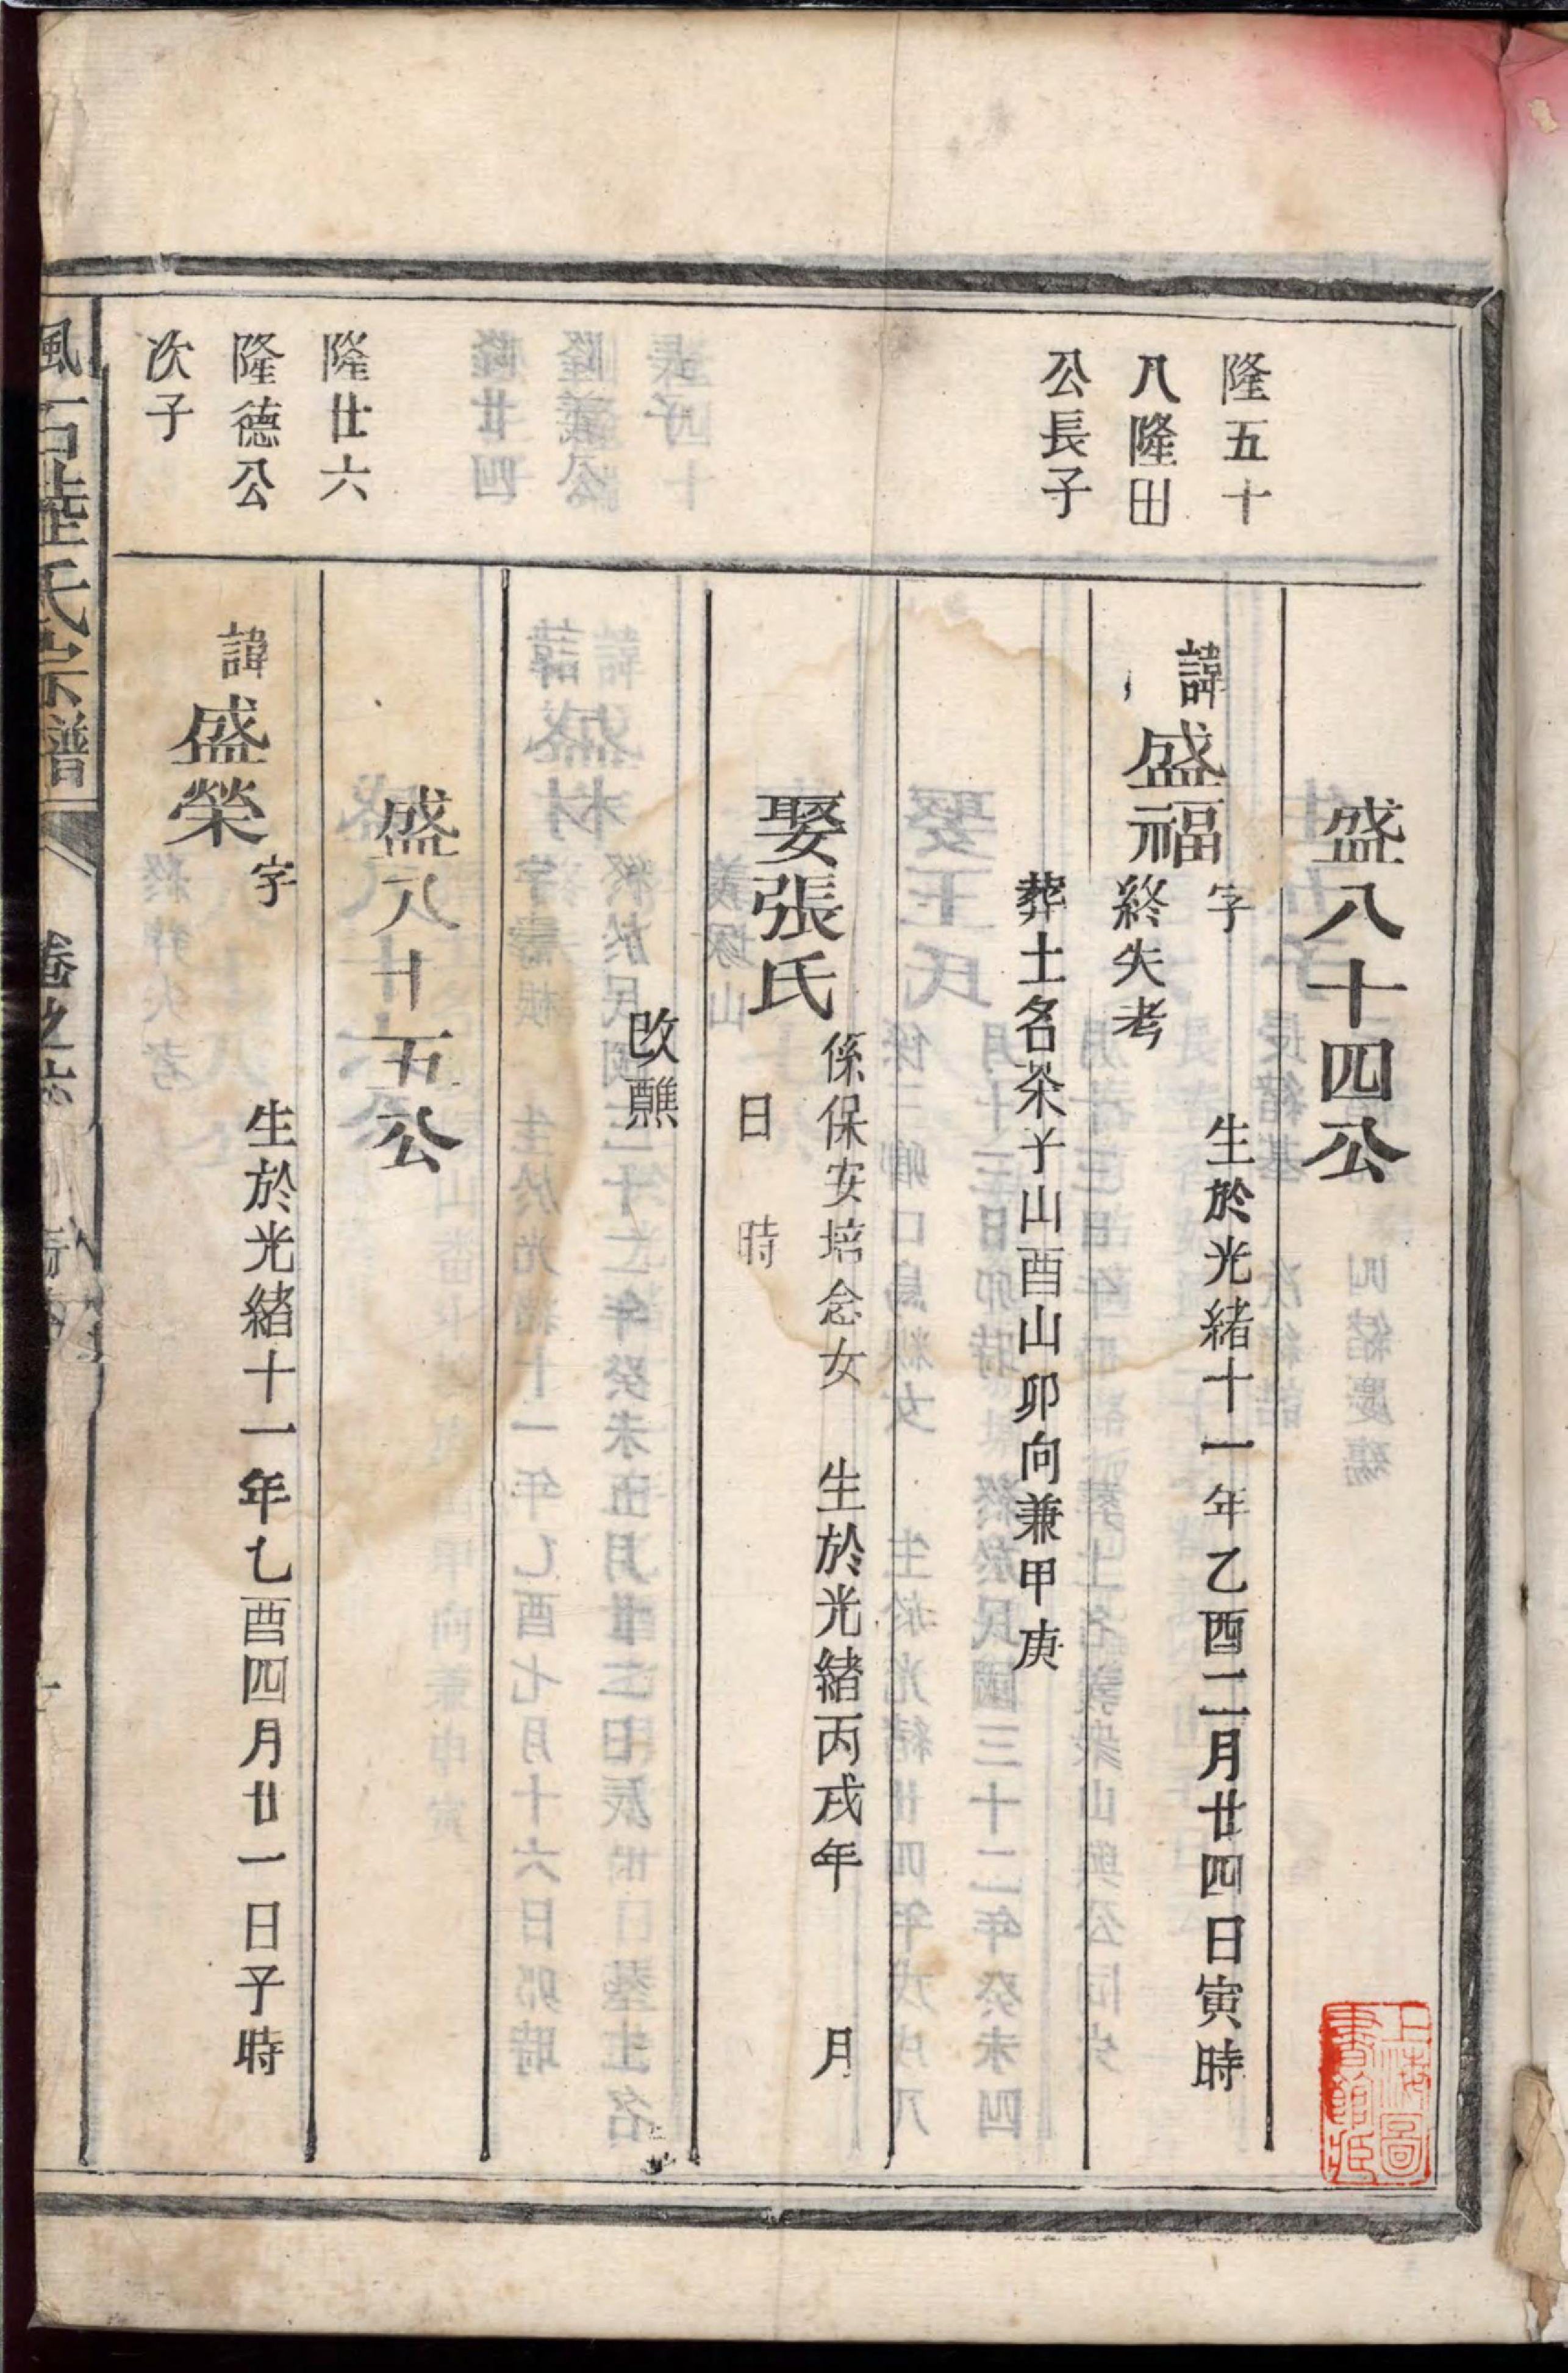 隆五十
八隆田
公長子
盛八十四公
諱盛福字 生於光緒十一年乙酉二月廿四日寅時
終失考
葬土名茶子山酉山卯向兼甲庚
娶張氏係保安培念女 生於光緒丙戌年 月
日 時
改醮
隆仕六
隆德公
次子
盛八十五公
諱盛榮字 生於光緒十一年乙酉四月廿一日子時
氏宗譜
卷之
上海圖
書館藏